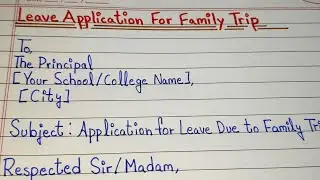 Leave Application For Family Trip
To,
The Principal
[Your School/College Name],
[City]
Subject: Application for Leave Due to Family Tri
Respected Sir/Madam,